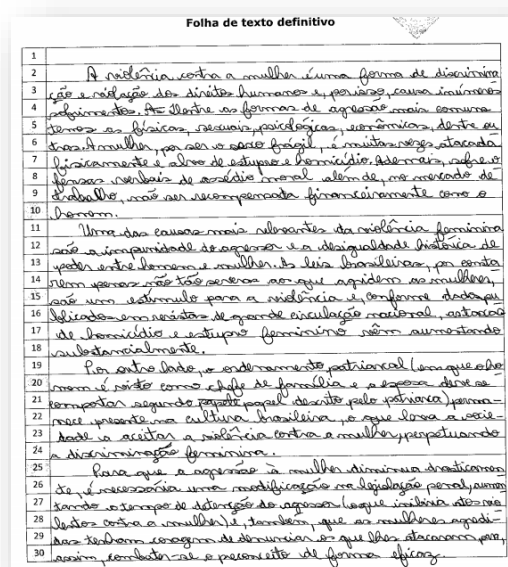 Folha de texto definitivo
1
2 A violência contra a mulher é uma forma de discrimina
3 ção e violação dos direitos humanos e, por isso, causa inúmeros
4 sofrimentos. Dentre as formas de agressão mais comuns
5 temos as físicas, sexuais, psicológicas, econômicas, dentre ou
6 tras. A mulher, por ser o sexo frágil, é muitas vezes atacada
7 fisicamente e alvo de estupro e homicídio. Ademais, sofre o
8 fensas verbais de assédio moral além de, no mercado de
9 trabalho, não ser recompensada financeiramente como o
10 homem.
11 Uma das causas mais relevantes da violência feminina
12 são a impunidade do agressor e a desigualdade histórica de
13 poder entre homem e mulher. As leis brasileiras, por conte
14 rem penas não tão severas aos que agridem as mulheres,
15 são um estímulo para a violência e, conforme dados pu
16 blicados em revistas de grande circulação nacional, as taxas
17 de homicídio e estupro feminino vêm aumentando
18 substancialmente.
19 Por outro lado, o ordenamento patriarcal (em que o ho
20 mem é visto como chefe de família e a esposa deve se
21 comportar segundo papel descrito pelo patriarca) perma-
22 nece presente na cultura brasileira, o que leva a socie-
23 dade a aceitar a violência contra a mulher, perpetuando
24 a discriminação feminina.
25 Para que a agressão à mulher diminua drasticamen
26 te, é necessária uma modificação na legislação penal, aumen
27 tando o tempo de detenção do agressor (o que inibiria atos vio
28 lentos contra a mulher) e, também, que as mulheres agredi-
29 das tenham coragem de denunciar os que lhes atacaram para,
30 assim, combater-se o preconceito de forma eficaz.